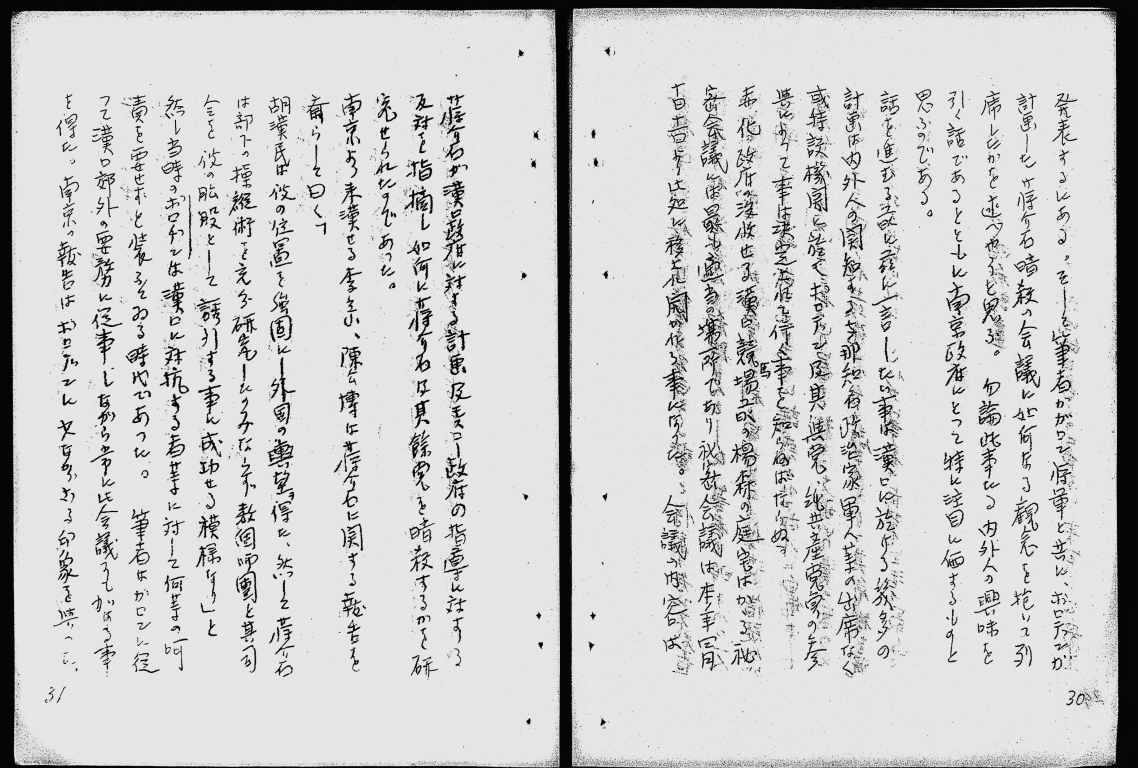 発表するにある。そして筆者がガロン将軍と共に、ボロデンが
計画した蒋介石暗殺の会議に如何なる観念を抱いて列
席したかを述べやうと思ふ。勿論此事たる内外人の興味を
引く話であるとともに南京政府にとって特に注目に価するものと
思ふのである。
話を進むる前に茲に一言したい事は漢口に於ける幾多の
計画は内外人の関知する支那知名政治家軍人等の出席なく
或特設機関に於てボロデン及其与党、純共産党員の参
与によって事は決定され得る事を知らねばならぬ。
赤化政府の没収せる漢口競馬場近の楊森の庭宅はかゝる秘
密会議には最も適当の場所であり秘密会議は本年四月
十日十一日より此処に移され開かれる事になった。会議の内容は
30
蒋介石が漢口政府に対する計画及モスコー政府の指導に対する
反対を指摘し如何に蒋介石及其餘党を暗殺するかを研
究せられたのであった。
南京より来漢せる李 、陳公博は蒋介石に関する報告を
齎らして曰く、「
胡漢民は彼の位置を強固にし外国の輿望を得た、然して蒋介石
は部下の操縦術を充分研究したのみならず数個師團と其司
令を彼の股肱として誘引する事に成功せる模様なり」と
然し当時のボロデンは漢口に対抗する者等に対して何等の呵
責を要せずと装ふてゐる時代であった。筆者はガロンに従
って漢口郊外の要務に従事しながら常に此会議にもかゝる事
を得た。南京の報告はボロデンに 印象を与へた、
31